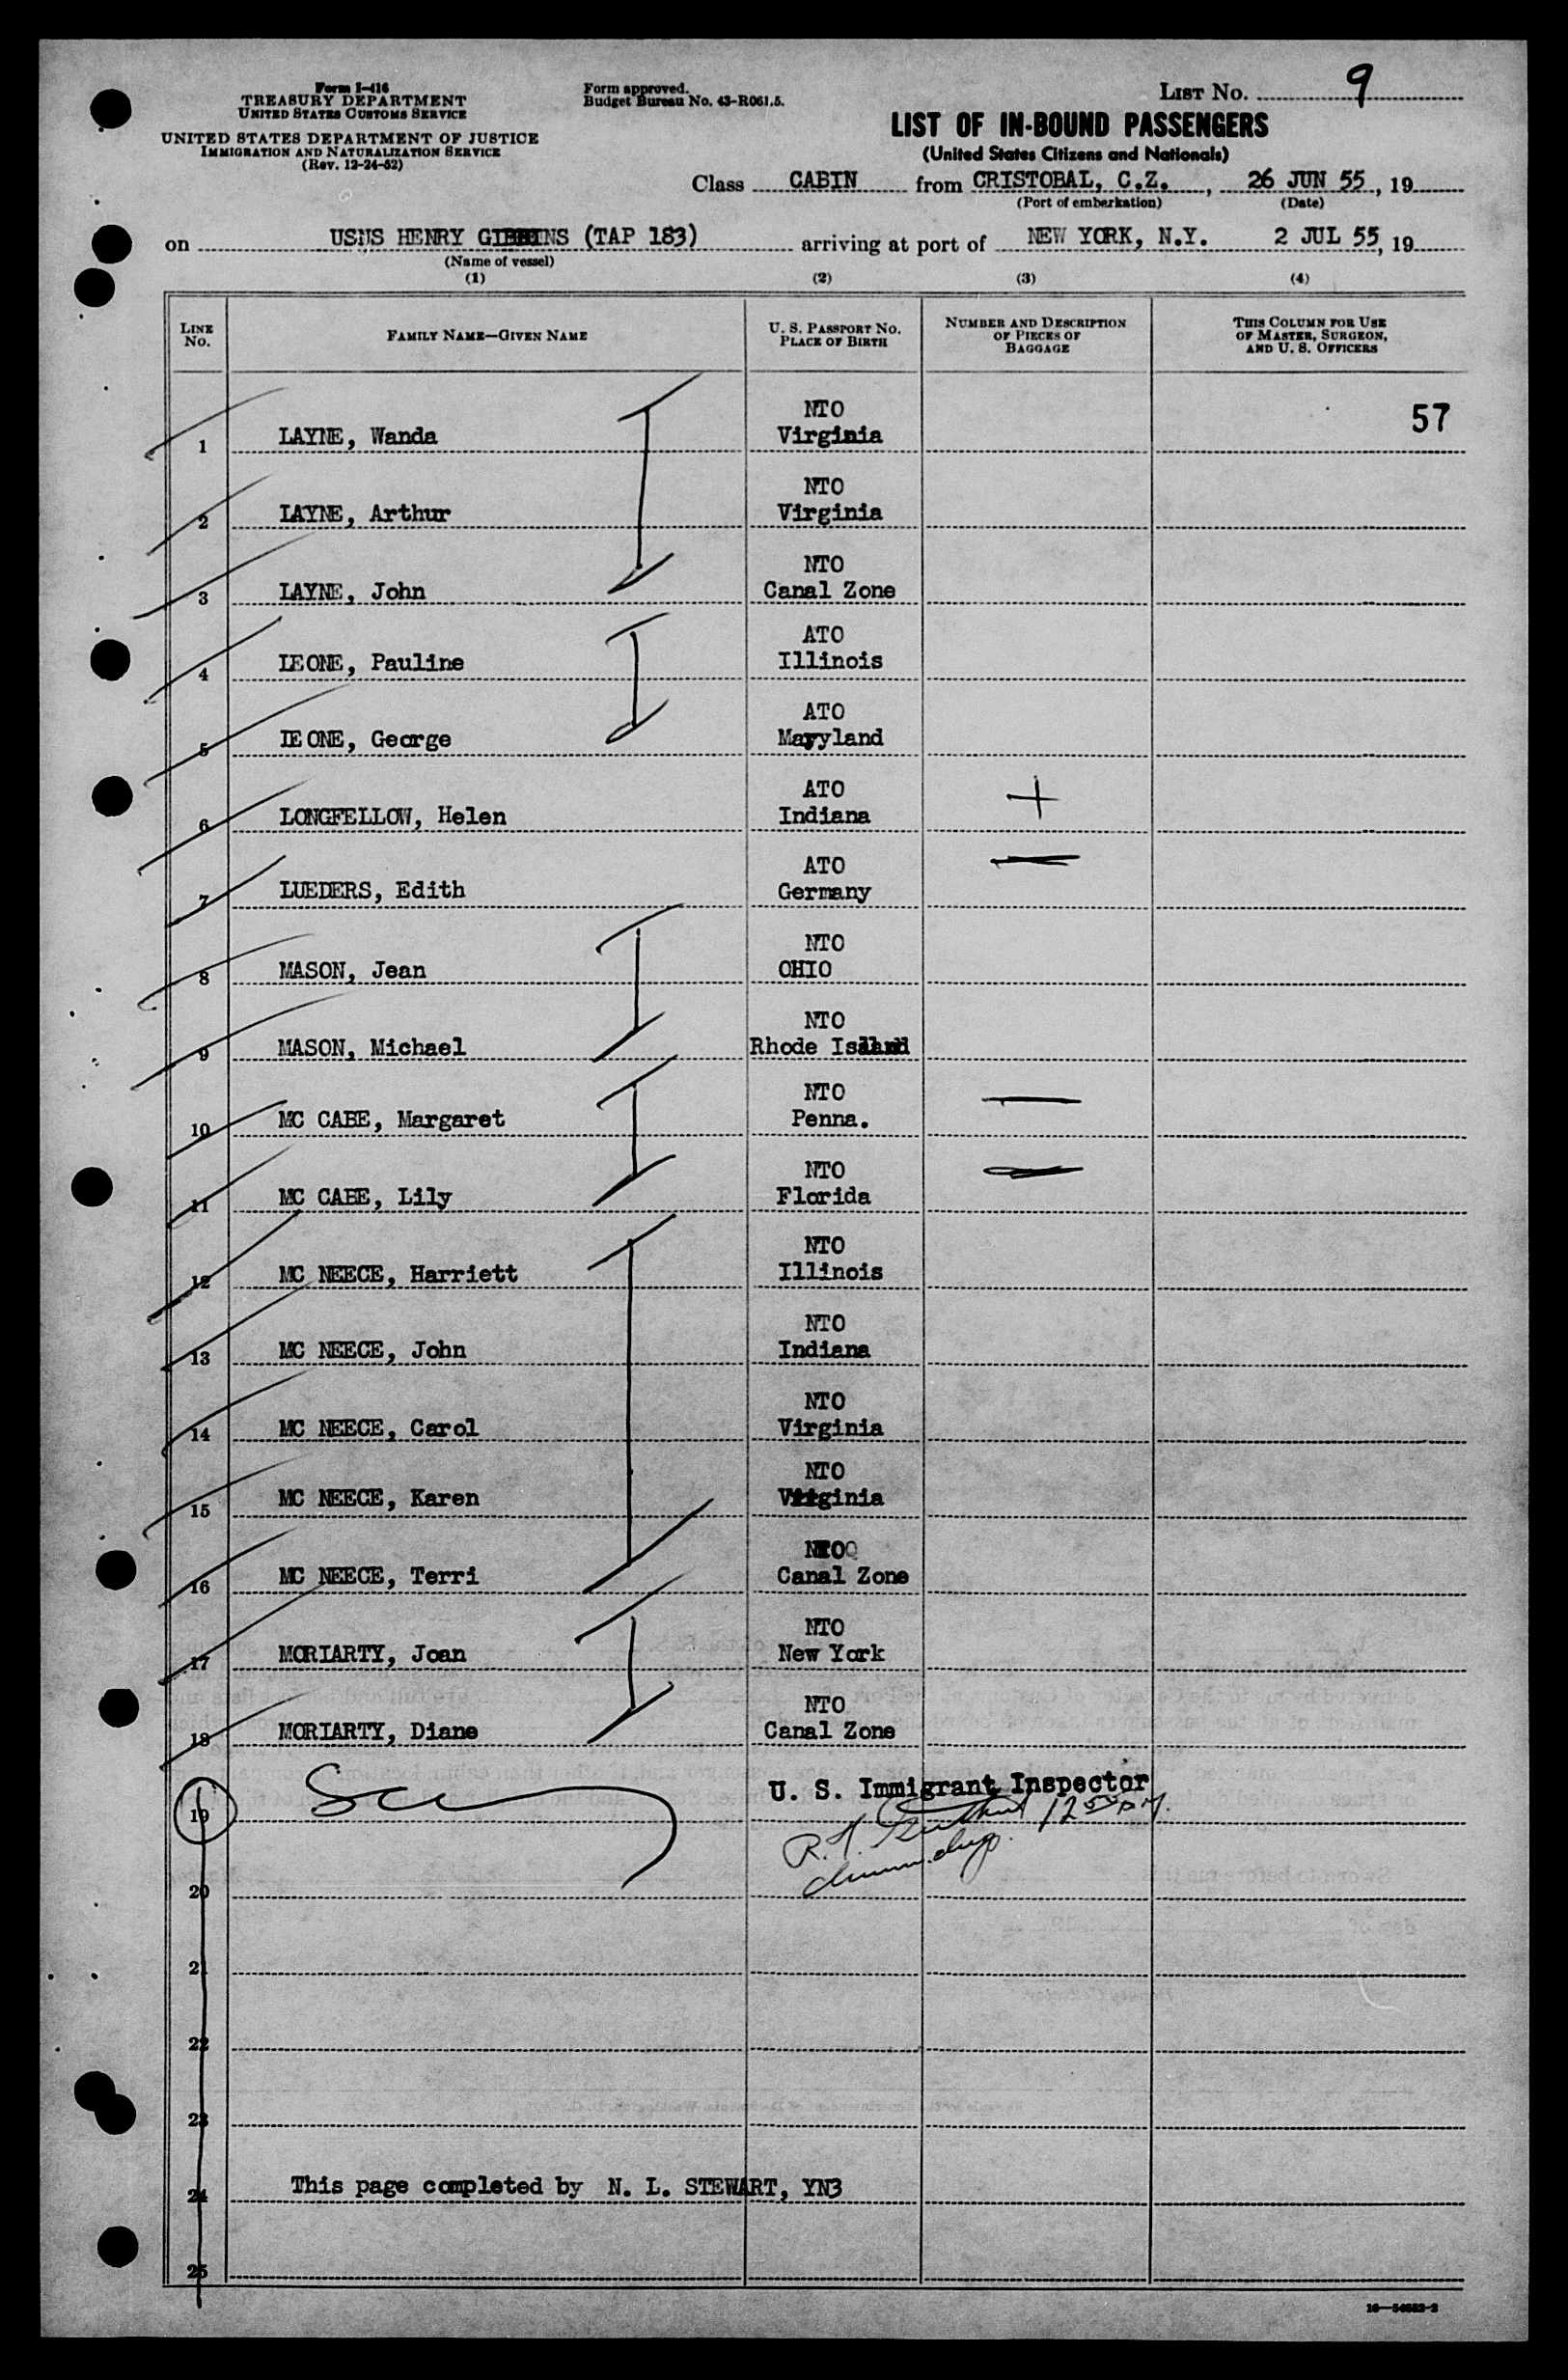 Form I-416
TREASURY DEPARTMENT
UNITED STATES CUSTOMS SERVICE
UNITED STATES DEPARTMENT OF JUSTICE
IMMIGRATION AND NATURALIZATION SERVICE
(Rev. 12-24-52)
Form approved.
Budget Bureau No. 43-R061.5.
LIST NO. 9
LIST OF IN-BOUND PASSENGERS
(United States Citizens and Nationals)
Class CABIN from CRISTOBAL, C.Z., 26 JUN 55, 19
(Port of embarkation) (Date)
on USNS HENRY GIBBINS (TAP 183) arriving at port of NEW YORK, N.Y. 2 JUL 55, 19
(Name of vessel)
(1) (2) (3) (4)
LINE NO. FAMILY NAME—GIVEN NAME U. S. PASSPORT NO. PLACE OF BIRTH NUMBER AND DESCRIPTION OF PIECES OF BAGGAGE THIS COLUMN FOR USE OF MASTER, SURGEON, AND U. S. OFFICERS
57
NTO
1 LAYNE, Wanda Virginia
NTO
2 LAYNE, Arthur Virginia
NTO
3 LAYNE, John Canal Zone
ATO
4 LEONE, Pauline Illinois
ATO
5 LEONE, George Maryland
ATO
6 LONGFELLOW, Helen Indiana
ATO
7 LUEDERS, Edith Germany
NTO
8 MASON, Jean OHIO
NTO
9 MASON, Michael Rhode Island
NTO
10 MC CABE, Margaret Penna.
NTO
11 MC CABE, Lily Florida
NTO
12 MC NEECE, Harriett Illinois
NTO
13 MC NEECE, John Indiana
NTO
14 MC NEECE, Carol Virginia
NTO
15 MC NEECE, Karen Virginia
NTO
16 MC NEECE, Terri Canal Zone
NTO
17 MORIARTY, Joan New York
NTO
18 MORIARTY, Diane Canal Zone
U. S. Immigrant Inspector
19
R.H. 12 50 PM.
20
21
22
23
24 This page completed by N. L. STEWART, YN3
25